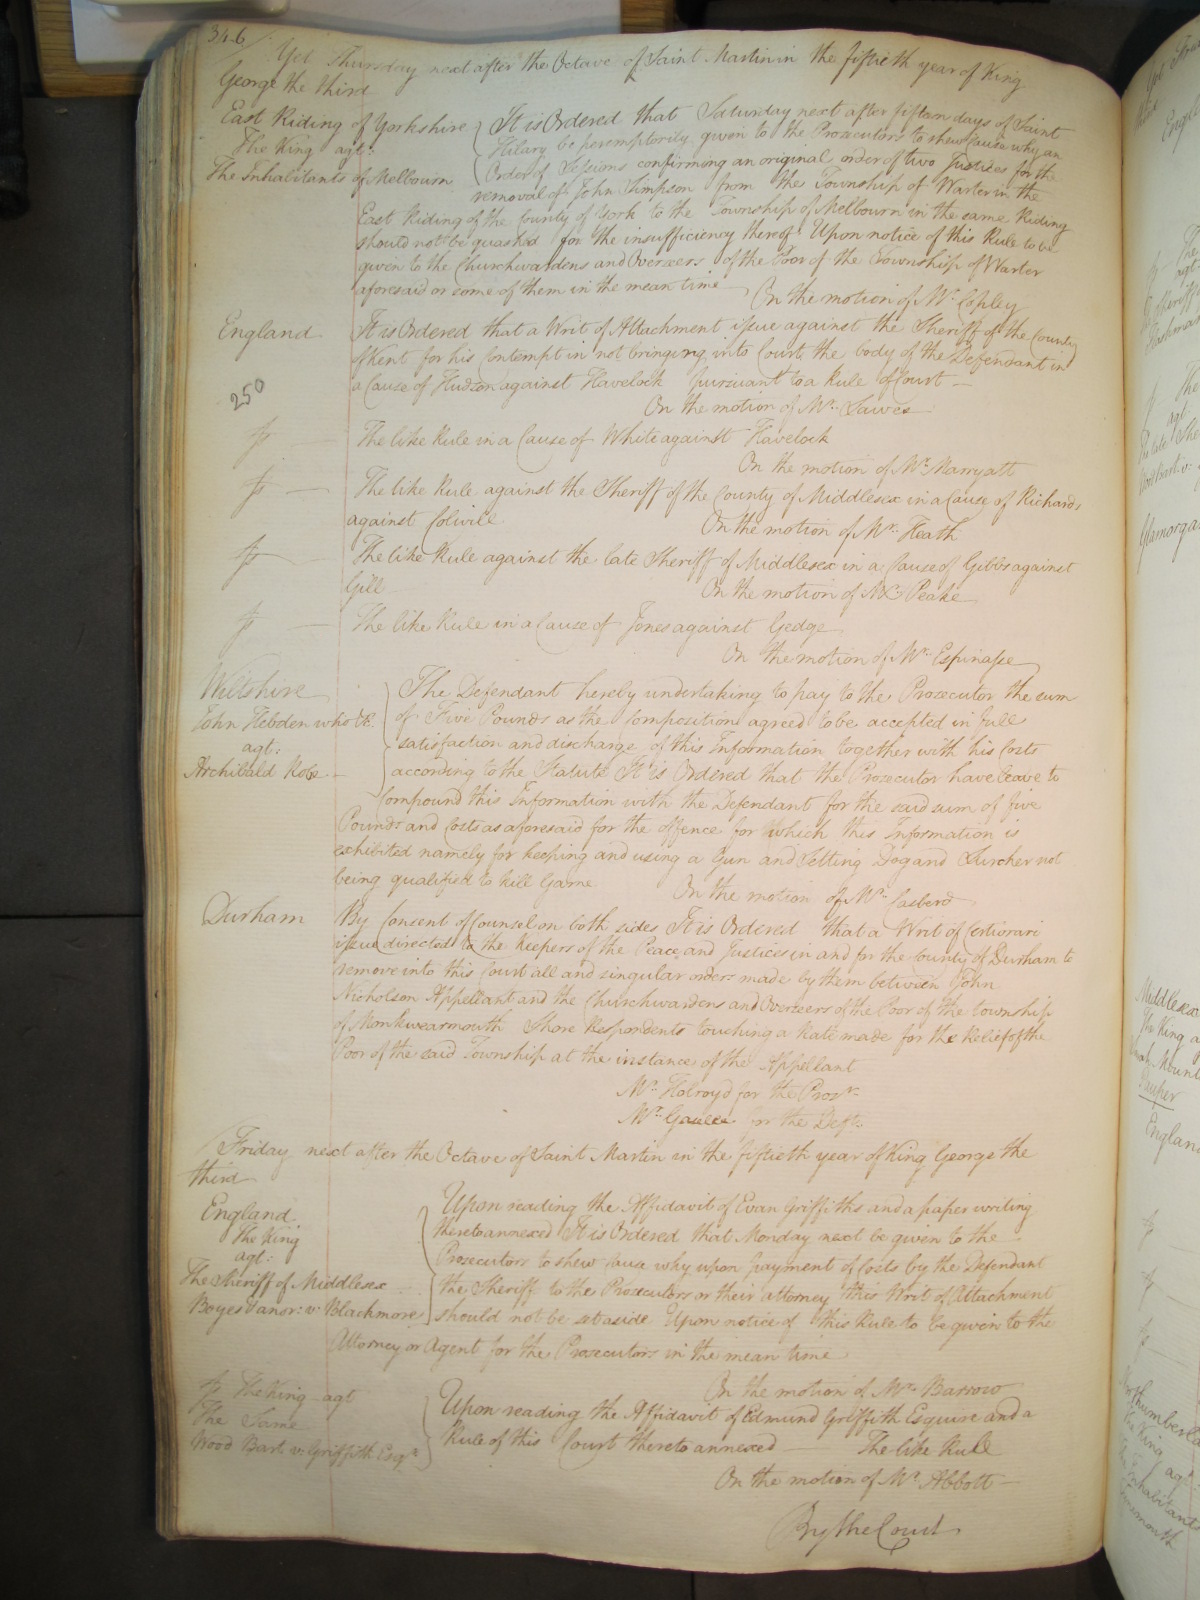 346
Yet Thursday next after the Octave of Saint Martin in the fiftieth year of King
George the third
East Riding of Yorkshire
The King agt:
The Inhabitants of Melbourn
It is Ordered that Saturday next after fifteen days of Saint
Hilary be peremptorily given to the Prosecutors to shew cause why an
Order of Sessions confirming an original order of two Justices for the
removal of John Simpson from the Township of Warter in the
East Riding of the County of York to the Township of Melbourn in the same Riding
should not be quashed for the insufficiency thereof Upon notice of this Rule to be
given to the Churchwardens and Overseers of the Poor of the Township of Warter
aforesaid or some of them in the mean time
On the motion of Mr. Copley
England
It is Ordered that a Writ of Attachment issue against the Sheriff of the County
of Kent for his Contempt in not bringing into Court the body of the Defendant in
a Cause of Hudson against Havelock pursuant to a Rule of Court
250
On the motion of Mr. Lawes
The like Rule in a Cause of White against Havelock
On the motion of Mr. Marryatt
The like Rule against the Sheriff of the County of Middlesex in a Cause of Richards
against Colvill
On the motion of Mr. Heath
The like Rule against the late Sheriff of Middlesex in a Cause of Gibbs against
Gill
On the motion of Mr. Peake
The like Rule in a Cause of Jones against Gedge
On the motion of Mr. Espinasse
Wiltshire
John Hebden who &c.
agt:
Archibald Robe
The Defendant hereby undertaking to pay to the Prosecutor the sum
of Five Pounds as the Composition agreed to be accepted in full
satisfaction and discharge of this Information together with his Costs
according to the Statute It is Ordered that the Prosecutor have leave to
Compound this Information with the Defendant for the said sum of five
Pounds and Costs as aforesaid for the offence for which this Information is
exhibited namely for keeping and using a Gun and Setting Dog and Lurcher not
being qualified to kill Game
On the motion of Mr. Casberd
Durham
By Consent of Counsel on both sides It is Ordered that a Writ of Certiorari
issue directed to the Keepers of the Peace and Justices in and for the County of Durham to
remove into this Court all and singular orders made by them between John
Nicholson Appellant and the Churchwardens and Overseers of the Poor of the township
of Monkwearmouth Shore Respondents touching a Rate made for the Relief of the
Poor of the said Township at the instance of the Appellant
Mr. Holroyd for the Prosr.
Mr. for the Deft.
Friday next after the Octave of Saint Martin in the fiftieth year of King George the
third
England
The King
agt:
The Sheriff of Middlesex
Boyes & anor: v: Blackmore
Upon reading the Affidavit of Evan Griffiths and a paper writing
thereto annexed It is Ordered that Monday next be given to the
Prosecutors to shew cause why upon payment of Costs by the Defendant
the Sheriff to the Prosecutors or their attorney this Writ of Attachment
should not be set aside Upon notice of this Rule to be given to the
Attorney or Agent for the Prosecutors in the mean time
On the motion of Mr. Barrow
The King agt
The Same
Wood Bart. v: Griffith Esqr.
Upon reading the Affidavit of Edmund Griffith Esquire and a
Rule of this Court thereto annexed The like Rule
On the motion of Mr. Abbott
By the Court
Middlesex
The King
Pauper
England